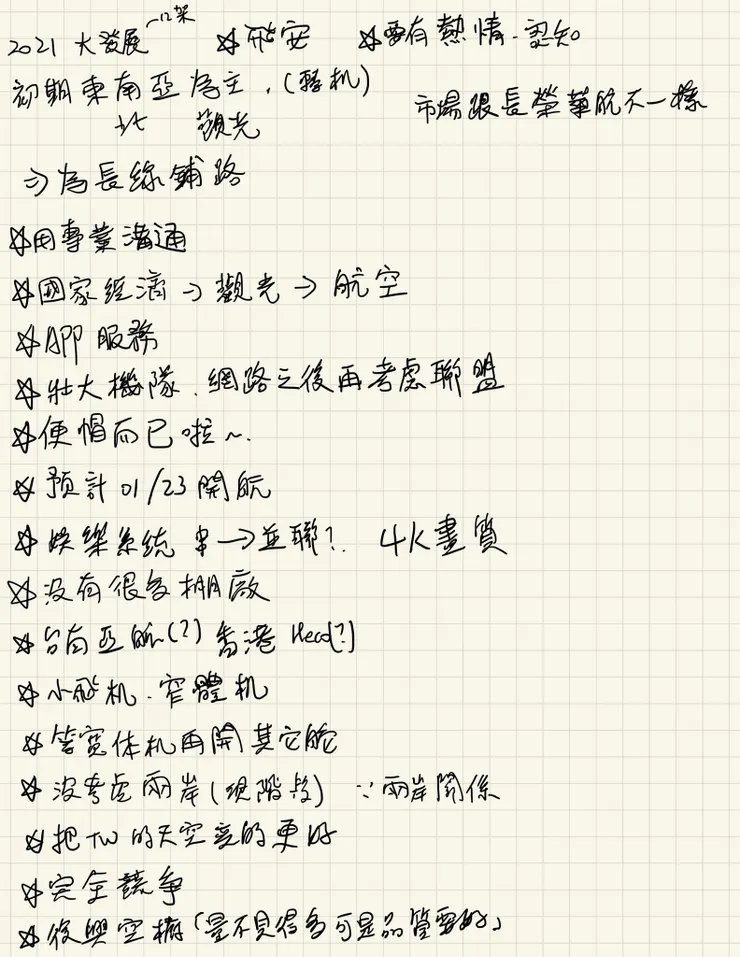 2021 大發展 12架 ☆飛安 ☆要有熱情、認知
初期東南亞為主、(轉机)
北 觀光 市場跟長榮華航不一樣
⇒為長線鋪路
☆用專業溝通
☆國家經濟→觀光→航空
☆APP 服務
☆壯大機隊、網路之後再考慮聯盟
☆便帽而已啦~.
☆預計 01/23 開航
☆娛樂系統 串→並聯? 4K畫質
☆没有很多棚廠
☆台南亞航(?) 香港 Head(?)
☆小飛机、窄體机
☆等寬体机再開其它航
☆沒考慮兩岸(現階段) ∵兩岸關係
☆把TW的天空變的更好
☆完全競爭
☆復興空橋(量不見得多可是品管要好)